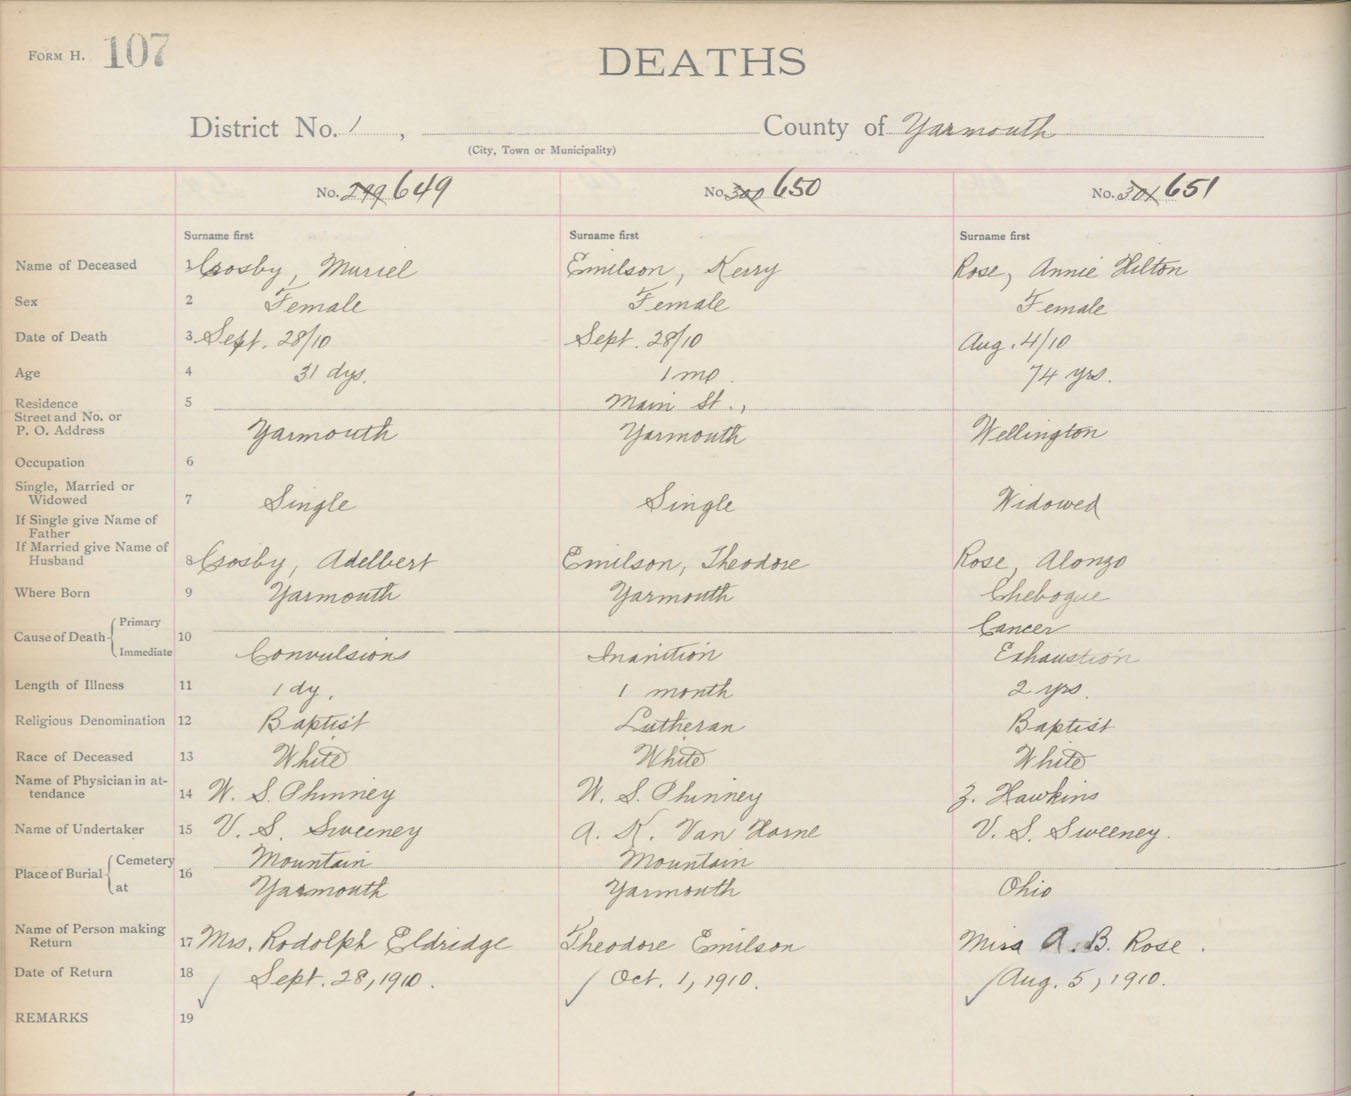 FORM H. 107
DEATHS
District No. 1 , County of Yarmouth
(City, Town or Municipality)
No. 299 649 No. 300 650 No. 301 651
Surname first Surname first Surname first
Name of Deceased 1 Crosby, Muriel Emilson, Kerry Rose, Annie Hilton
Sex 2 Female Female Female
Date of Death 3 Sept. 28/10 Sept. 28/10 Aug. 4/10
Age 4 31 dys. 1 mo. 74 yrs.
Residence 5 Main St.,
Street and No. or
P. O. Address Yarmouth Yarmouth Wellington
Occupation 6
Single, Married or
Widowed 7 Single Single Widowed
If Single give Name of
Father
If Married give Name of
Husband 8 Crosby, Adelbert Emilson, Theodore Rose, Alonzo
Where Born 9 Yarmouth Yarmouth Chebogue
Cause of Death Primary 10 Cancer
Immediate Convulsions Inanition Exhaustion
Length of Illness 11 1 dy. 1 month 2 yrs.
Religious Denomination 12 Baptist Lutheran Baptist
Race of Deceased 13 White White White
Name of Physician in at-
tendance 14 W. S. Phinney W. S. Phinney Z. Hawkins
Name of Undertaker 15 V. S. Sweeney A. K. Van Horne V. S. Sweeney.
Place of Burial Cemetery 16 Mountain Mountain
at Yarmouth Yarmouth Ohio
Name of Person making
Return 17 Mrs. Rodolph Eldridge Theodore Emilson Miss A. B. Rose.
Date of Return 18 Sept. 28, 1910. Oct. 1, 1910. Aug. 5, 1910.
REMARKS 19